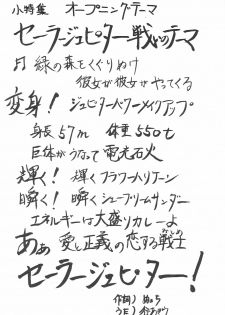 小特集 オープニング・テーマ
セーラージュピター戦いのテーマ
緑の森をくぐりぬけ
彼女が彼女がやってくる
変身! ジュピターパワーメイクアップ
身長57m 体重550t
巨体がうなって電光石火
輝く! 輝くフラワーハリケーン
瞬く! 瞬くシュープリームサンダー
エネルギーは大盛りカレーよ
ああ 愛と正義の恋する戦士
セーラージュピター!
作詞)